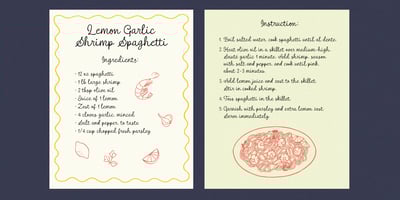 Lemon Garlic
Shrimp Spaghetti
Ingredients:
- 12 oz spaghetti
- 1 lb large shrimp
- 2 tbsp olive oil
- Juice of 1 lemon
- Zest of 1 lemon
- 4 cloves garlic, minced
- Salt and pepper, to taste
- 1/4 cup chopped fresh parsley
Instruction:
1. Boil salted water, cook spaghetti until al dente.
2. Heat olive oil in a skillet over medium-high.
Sauté garlic 1 minute. Add shrimp, season
with salt and pepper, and cook until pink,
about 2-3 minutes.
3. Add lemon juice and zest to the skillet.
Stir in cooked shrimp.
4. Toss spaghetti in the skillet.
5. Garnish with parsley and extra lemon zest.
Serve immediately.